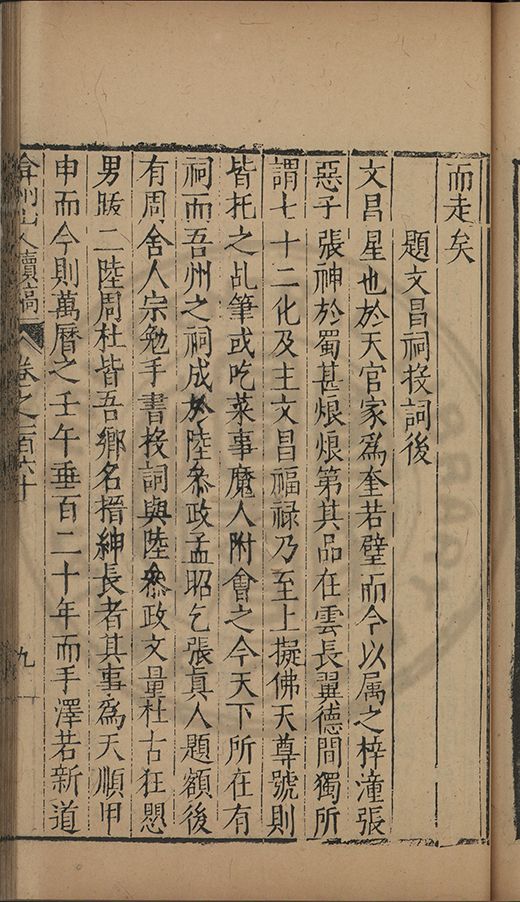 而走矣
題文昌祠投詞後
文昌星也於天官家爲奎若壁而今以属之梓潼張
惡子張神於蜀甚烺烺第其品在雲長翼德間獨所
謂七十二化及主文昌福禄乃至上擬佛天尊號則
皆托之乩筆或吃菜事魔人附會之今天下所在有
祠而吾州之祠成於陸叅政孟昭乞張真人題額後
有周舍人宗勉手書投詞與陸叅政文量杜古狂惄
男䟦二陸周杜皆吾鄉名搢紳長者其事爲天順甲
申而今則萬曆之壬午垂百二十年而手澤若新道
弇州山人續稿 卷之一百六十 九